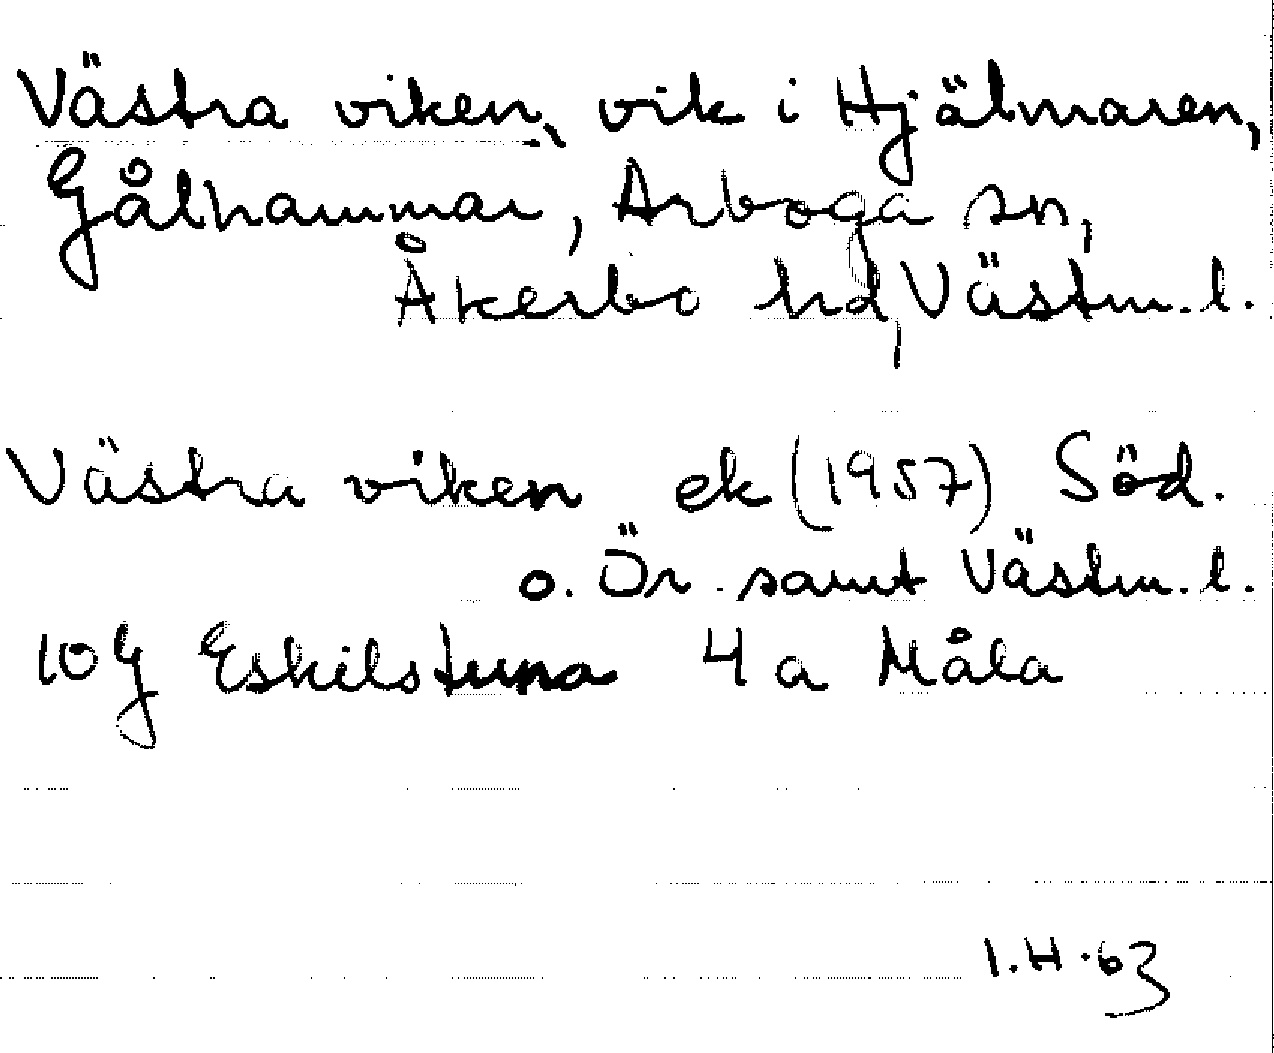 Västra viken, vik i Hjälmaren,
Gålhammar, Arboga sn,
Åkerbo hd, Västm. l.
Västra viken ek (1957) Söd.
o. Ör. samt Västm. l.
10 G Eskilstuna 4 a Måla
I.H.63